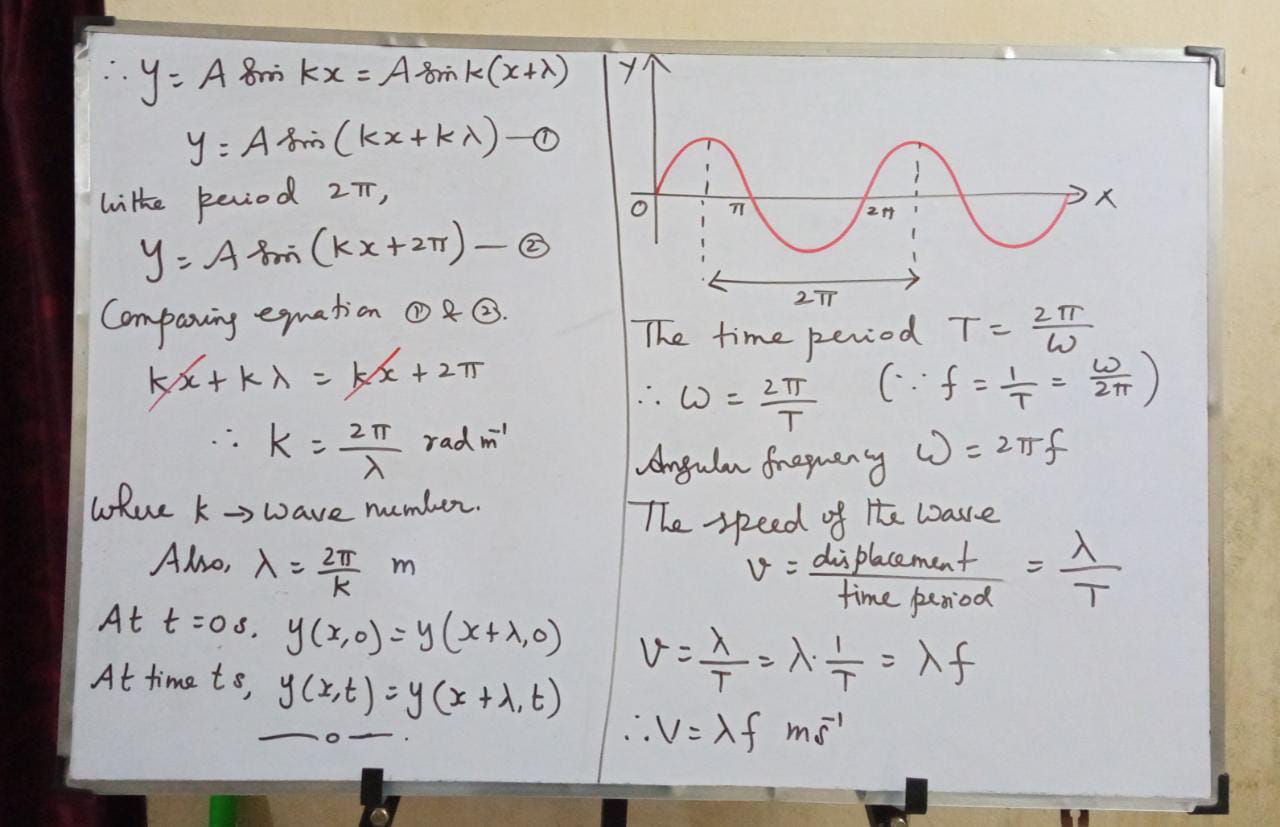 ∴ y = A sin kx = A sin k(x+λ)
y = A sin (kx + kλ) — ①
with the period 2π,
y = A sin (kx + 2π) — ②
Comparing equation ① & ②.
kx + kλ = kx + 2π
∴ k = 2π/λ rad m⁻¹
where k → wave number.
Also, λ = 2π/k m
At t = 0 s, y(x,0) = y(x+λ,0)
At time t s, y(x,t) = y(x+λ,t)
—o—.
Y
O π 2π X
2π
The time period T = 2π/ω
∴ ω = 2π/T (∵ f = 1/T = ω/2π)
Angular frequency ω = 2πf
The speed of the wave
v = displacement/time period = λ/T
v = λ/T = λ·1/T = λf
∴ v = λf ms⁻¹